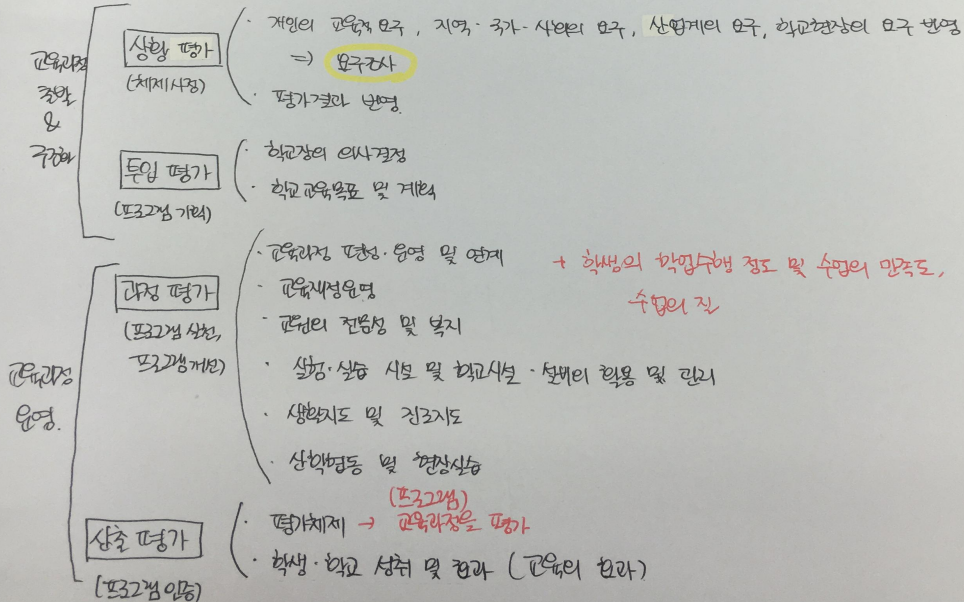 교육과정
출발
&
구조화
상황 평가
(체제사정)
· 개인의 교육적 요구, 지역·국가·사회의 요구, 산업계의 요구, 학교현장의 요구 반영
⇒ 요구조사
· 평가결과 반영.
투입 평가
(프로그램 기획)
· 학교장의 의사결정
· 학교교육목표 및 계획
교육과정
운영.
과정 평가
(프로그램 실천,
프로그램개선)
· 교육과정 편성·운영 및 연계
· 교육재정운영
· 교원의 전문성 및 복지
· 실험·실습 시설 및 학교시설·설비의 활용 및 관리
· 생활지도 및 진로지도
· 산학협동 및 현장실습
+ 학생의 학업수행 정도 및 수업의 만족도,
수업의 질
산출 평가
(프로그램인증)
(프로그램)
· 평가체제 → 교육과정을 평가
· 학생·학교 성취 및 효과 (교육의 효과)